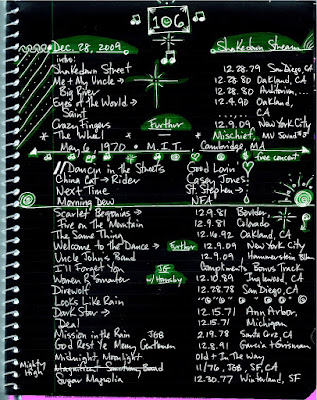 106
Dec. 28, 2009 Shakedown Stream
intro:
Shakedown Street 12.28.79 San Diego, CA
Me + My Uncle → 12.28.80 Oakland, CA
Big River 12.28.80 Auditorium, ...
Eyes of the World → 12.4.90 Oakland,
Saint CA
Crazy Fingers Further 12.9.09 New York City
* The Wheel * Mischief, MV Sound
May 6, 1970 • M.I.T. Cambridge, MA
free concert
Dancin in the Streets Good Lovin
China Cat → Rider Casey Jones
Next Time St. Stephen →
Morning Dew NFA
Scarlet Begonias → 12.9.81 Boulder,
Fire on the Mountain 12.9.81 Colorado
The Same Thing 12.16.92 Oakland, CA
Welcome to the Dance → Further 12.9.09 New York City
Uncle John's Band 12.9.09 Hammerstein Blrm
I'll Forget You Compliments Bonus Track
Women R Smarter JG w/ Hornsby 12.10.89 Inglewood, CA
Direwolf 12.28.78 San Diego, CA
Looks Like Rain
Dark Star → 12.15.71 Ann Arbor,
Deal 12.15.71 Michigan
Mission in the Rain JGB 2.19.78 Santa Cruz, CA
God Rest Ye Merry Gentlemen 12.8.91 Garcia + Grisman
Midnight Moonlight Old + In The Way
Mighty High Magnificent Sanctuary Band 11/76, JGB, SF, CA
Sugar Magnolia 12.30.77 Winterland, SF